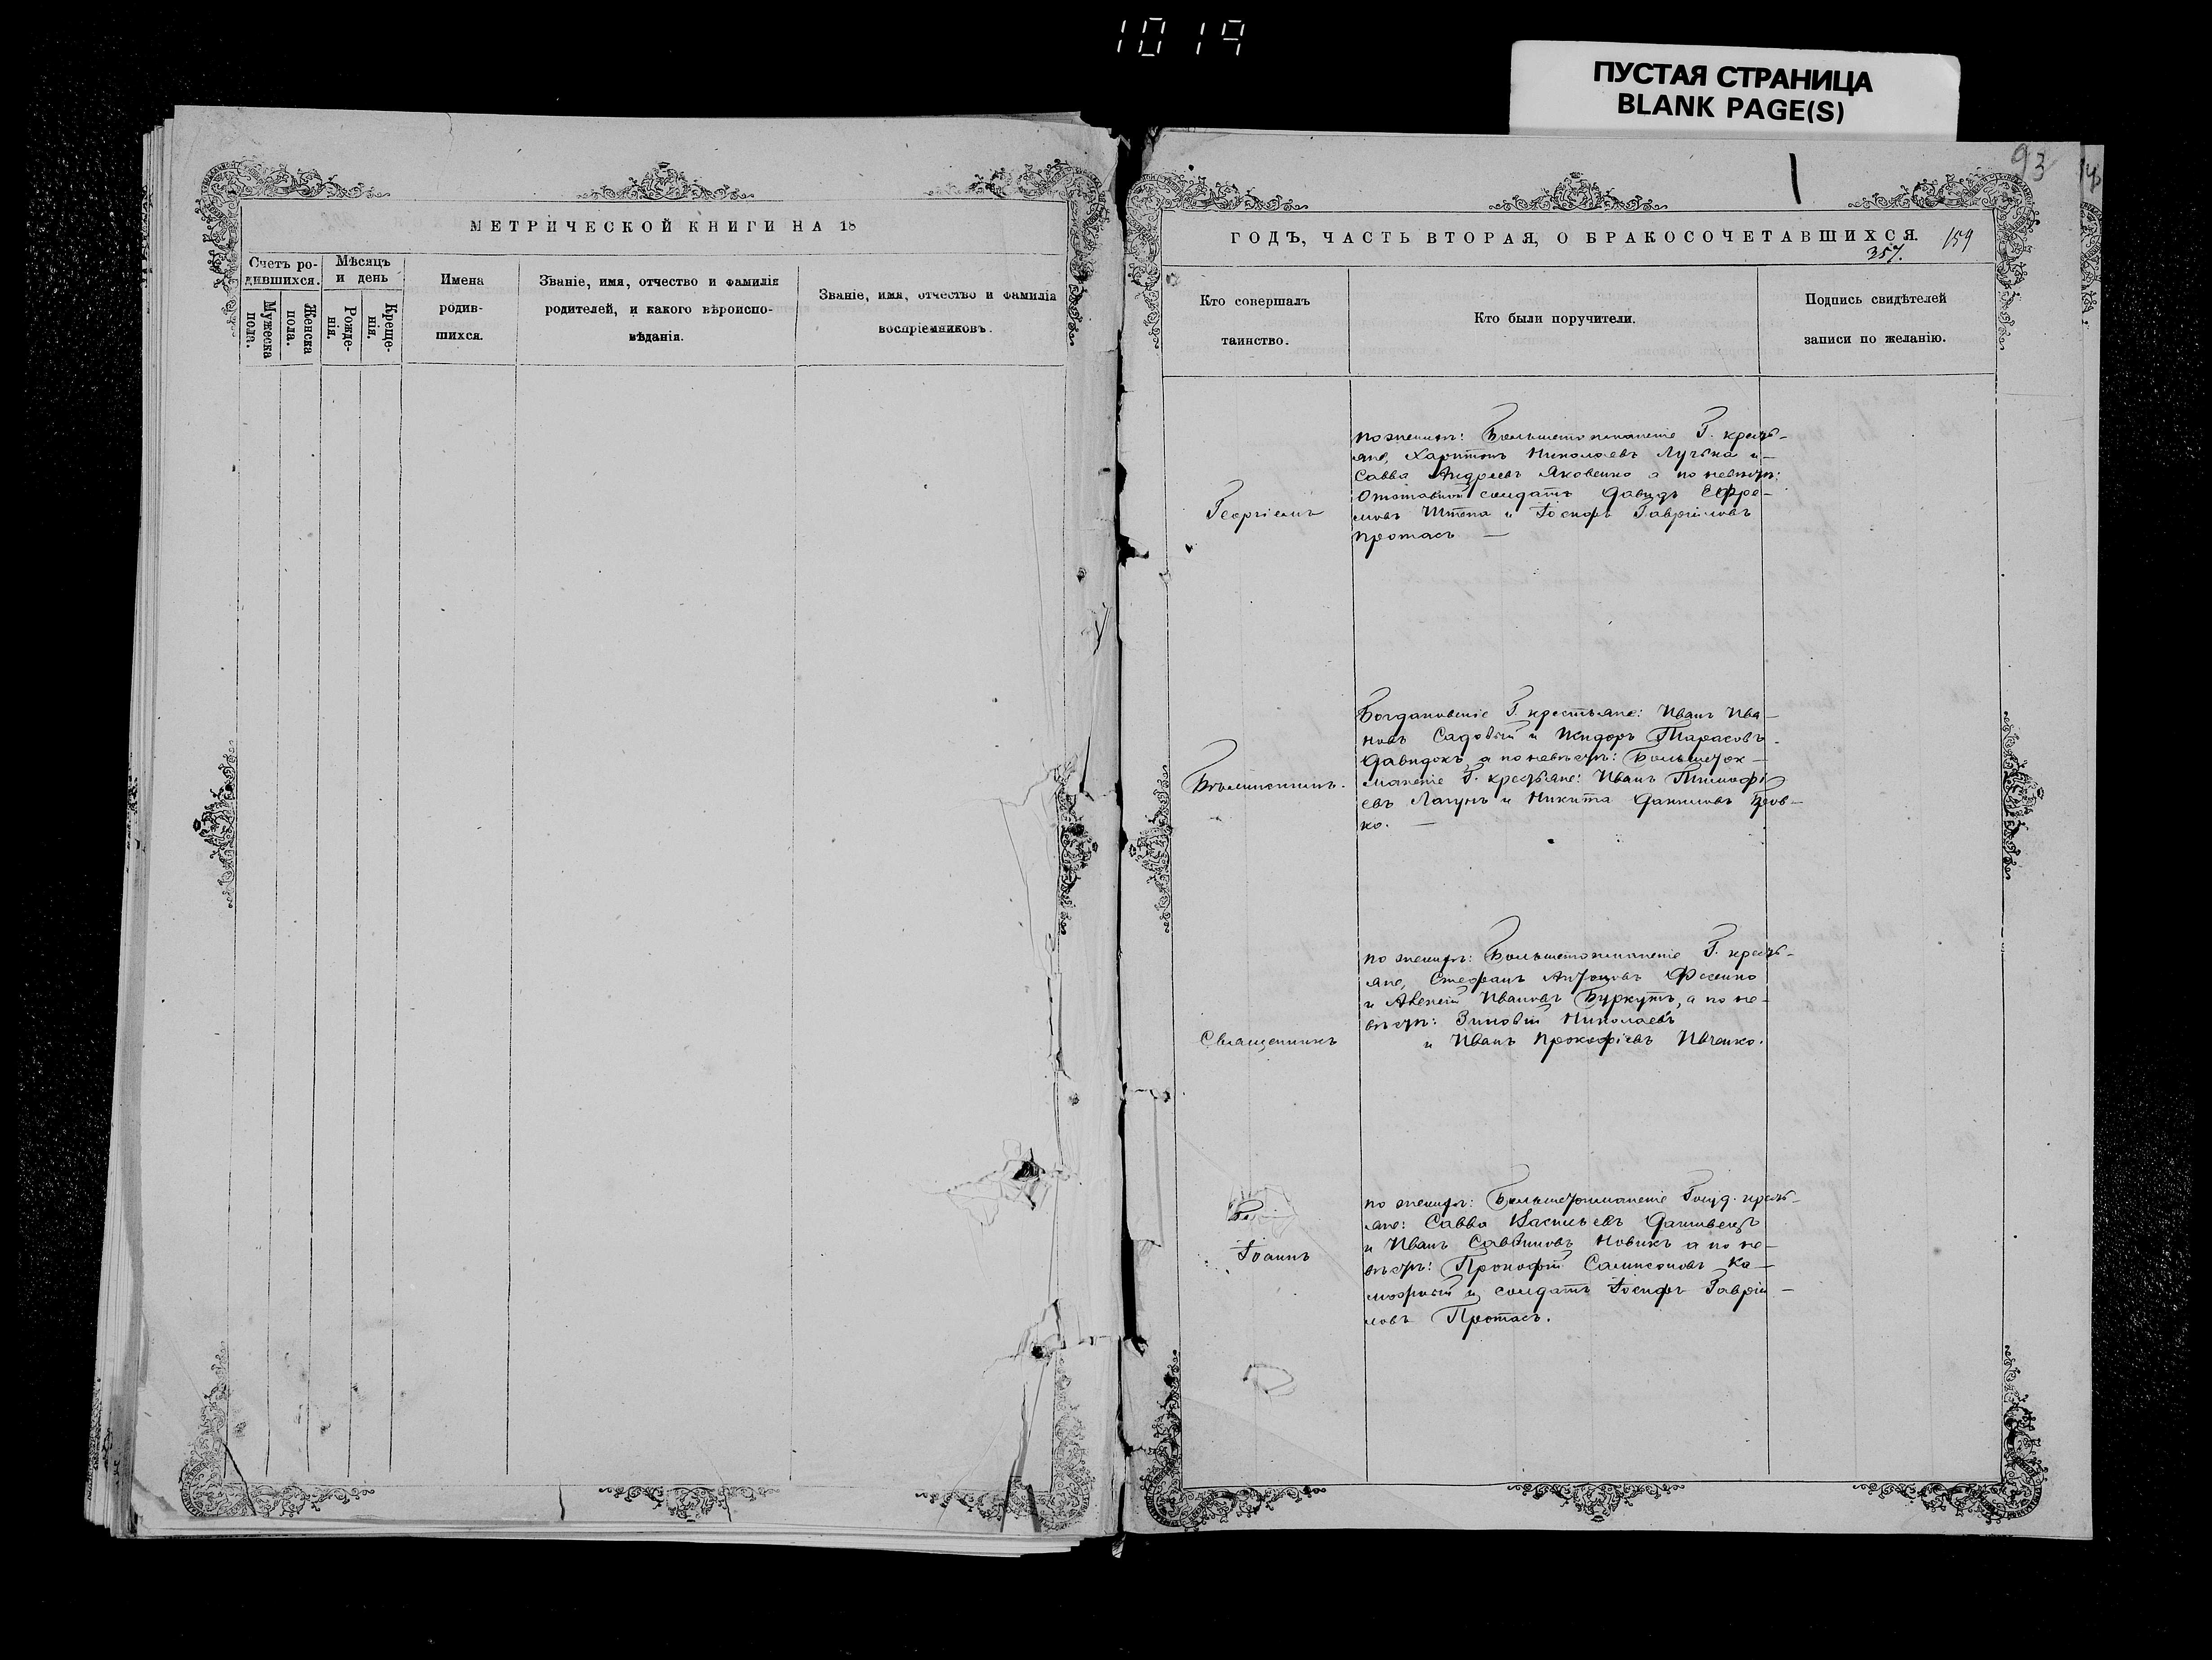 1019
ПУСТАЯ СТРАНИЦА
BLANK PAGE(S)
МЕТРИЧЕСКОЙ КНИГИ НА 18
Счетъ ро-
дившихся.
Мужеска
пола.
Женска
пола.
Мѣсяцъ
и день
Рожде-
нія.
Креще-
нія.
Имена
родив-
шихся.
Званіе, имя, отчество и фамилія
родителей, и какого вѣроиспо-
вѣданія.
Званіе, имя, отчество и фамилія
воспріемниковъ.
93
ГОДЪ, ЧАСТЬ ВТОРАЯ, О БРАКОСОЧЕТАВШИХСЯ.
159
357.
Кто совершалъ
таинство.
Кто были поручители.
Подпись свидѣтелей
записи по желанію.
Георгіемъ
по жениху: Большетокмакскіе Г. кресть-
яне, Харитонъ Николаевъ и
Савва Андреевъ Яковенко а по невѣстѣ:
Отставной солдатъ Давидъ Ефре-
мовъ Штепа и Іосифъ Гавріиловъ
Протасъ —
Богдановскіе Г. крестьяне: Иванъ Ива-
новъ Садовый и Исидоръ Тарасовъ
Давидокъ, а по невѣстѣ: Большеток-
макскіе Г. крестьяне: Иванъ Тимофе-
евъ Лагунъ и Никита Даниловъ
ко. —
Священникъ
по жениху: Большетокмакскіе Г. кресть-
яне, Стефанъ Антоновъ Фесенко
и Алексѣй Ивановъ Буркутъ, а по не-
вѣстѣ: Зиновій Николаевъ
и Иванъ Прокофіевъ Ивченко.
Іоаннъ
по жениху: Большетокмакскіе Госуд. кресть-
яне: Савва Васильевъ
и Иванъ Саввиновъ Новикъ а по не-
вѣстѣ: Прокофій Самисоновъ
и солдатъ Іосифъ Гавріи-
ловъ Протасъ.